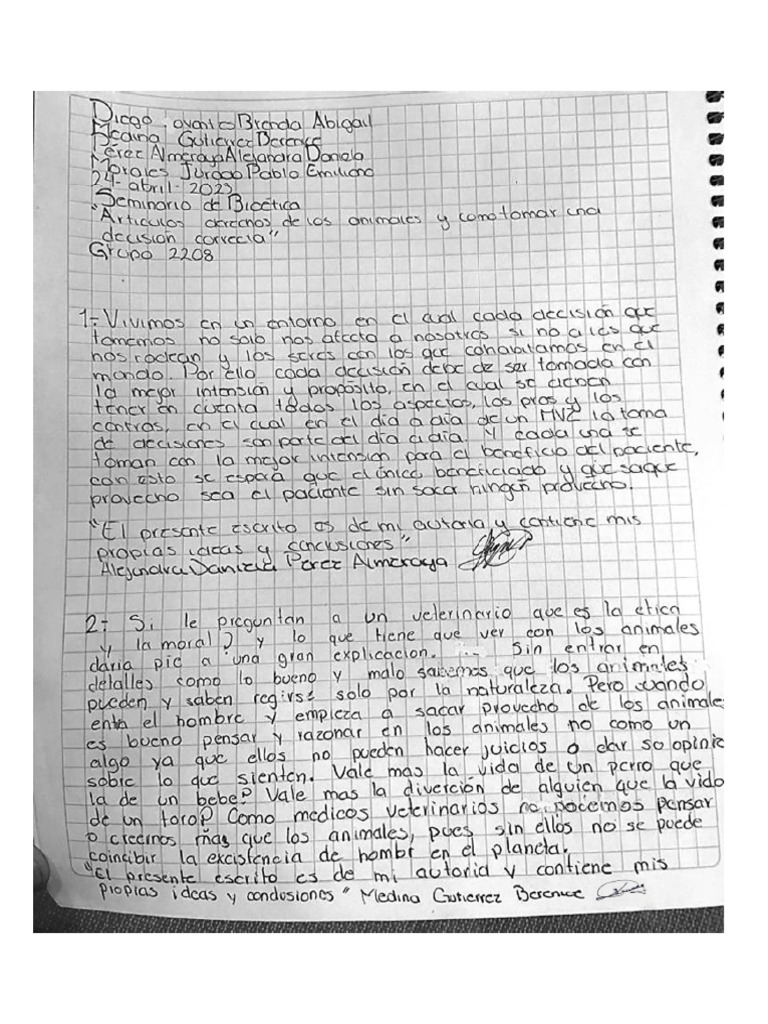 Diego Brenda Abigail
Medina Gutierrez Berenice
Pérez Almeraya Alejandra Daniela
Morales Jurado Pablo Emiliano
24-abril-2023
Seminario de Bioética
"Articulos derechos de los animales y como tomar una
decisión correcta"
Grupo 2208
1.- Vivimos en un entorno en el cual cada decisión que
tomemos no solo nos afecta a nosotros si no a los que
nos rodean y los seres con los que cohabitamos en el
mundo. Por ello cada decisión debe de ser tomada con
la mejor intensión y propósito, en el cual se deben
tener en cuenta todos los aspectos, los pros y los
contras, en el cual en el día a día de un MVZ la toma
de decisiones son parte del día a día. Y cada una se
toman con la mejor intension para el beneficio del paciente,
con esto se espera que el único beneficiado y que saque
provecho sea el paciente sin sacar ningún provecho.
"El presente escrito es de mi autoria y contiene mis
propias ideas y conclusiones"
Alejandra Daniela Perez Almeraya
2- Si le preguntan a un veterinario que es la etica
y la moral? y lo que tiene que ver con los animales
daria pie a una gran explicacion. Sin entrar en
detalles como lo bueno y malo sabemos que los animales
pueden y saben regirse solo por la naturaleza. Pero cuando
enta el hombre y empieza a sacar provecho de los animale
es bueno pensar y razonar en los animales no como un
algo ya que ellos no pueden hacer juicios o dar so opinio
sobre lo que sienten. Vale mas la vida de un perro que
la de un bebe? Vale mas la diverción de alguien que la vida
de un toro? Como medicos veterinarios no podemos pensar
o creernos mas que los animales, pues sin ellos no se puede
coincibir la excistencia de hombr en el planeta.
"El presente escrito es de mi autoria y contiene mis
propias ideas y conclusiones" Medina Gutierrez Berenice